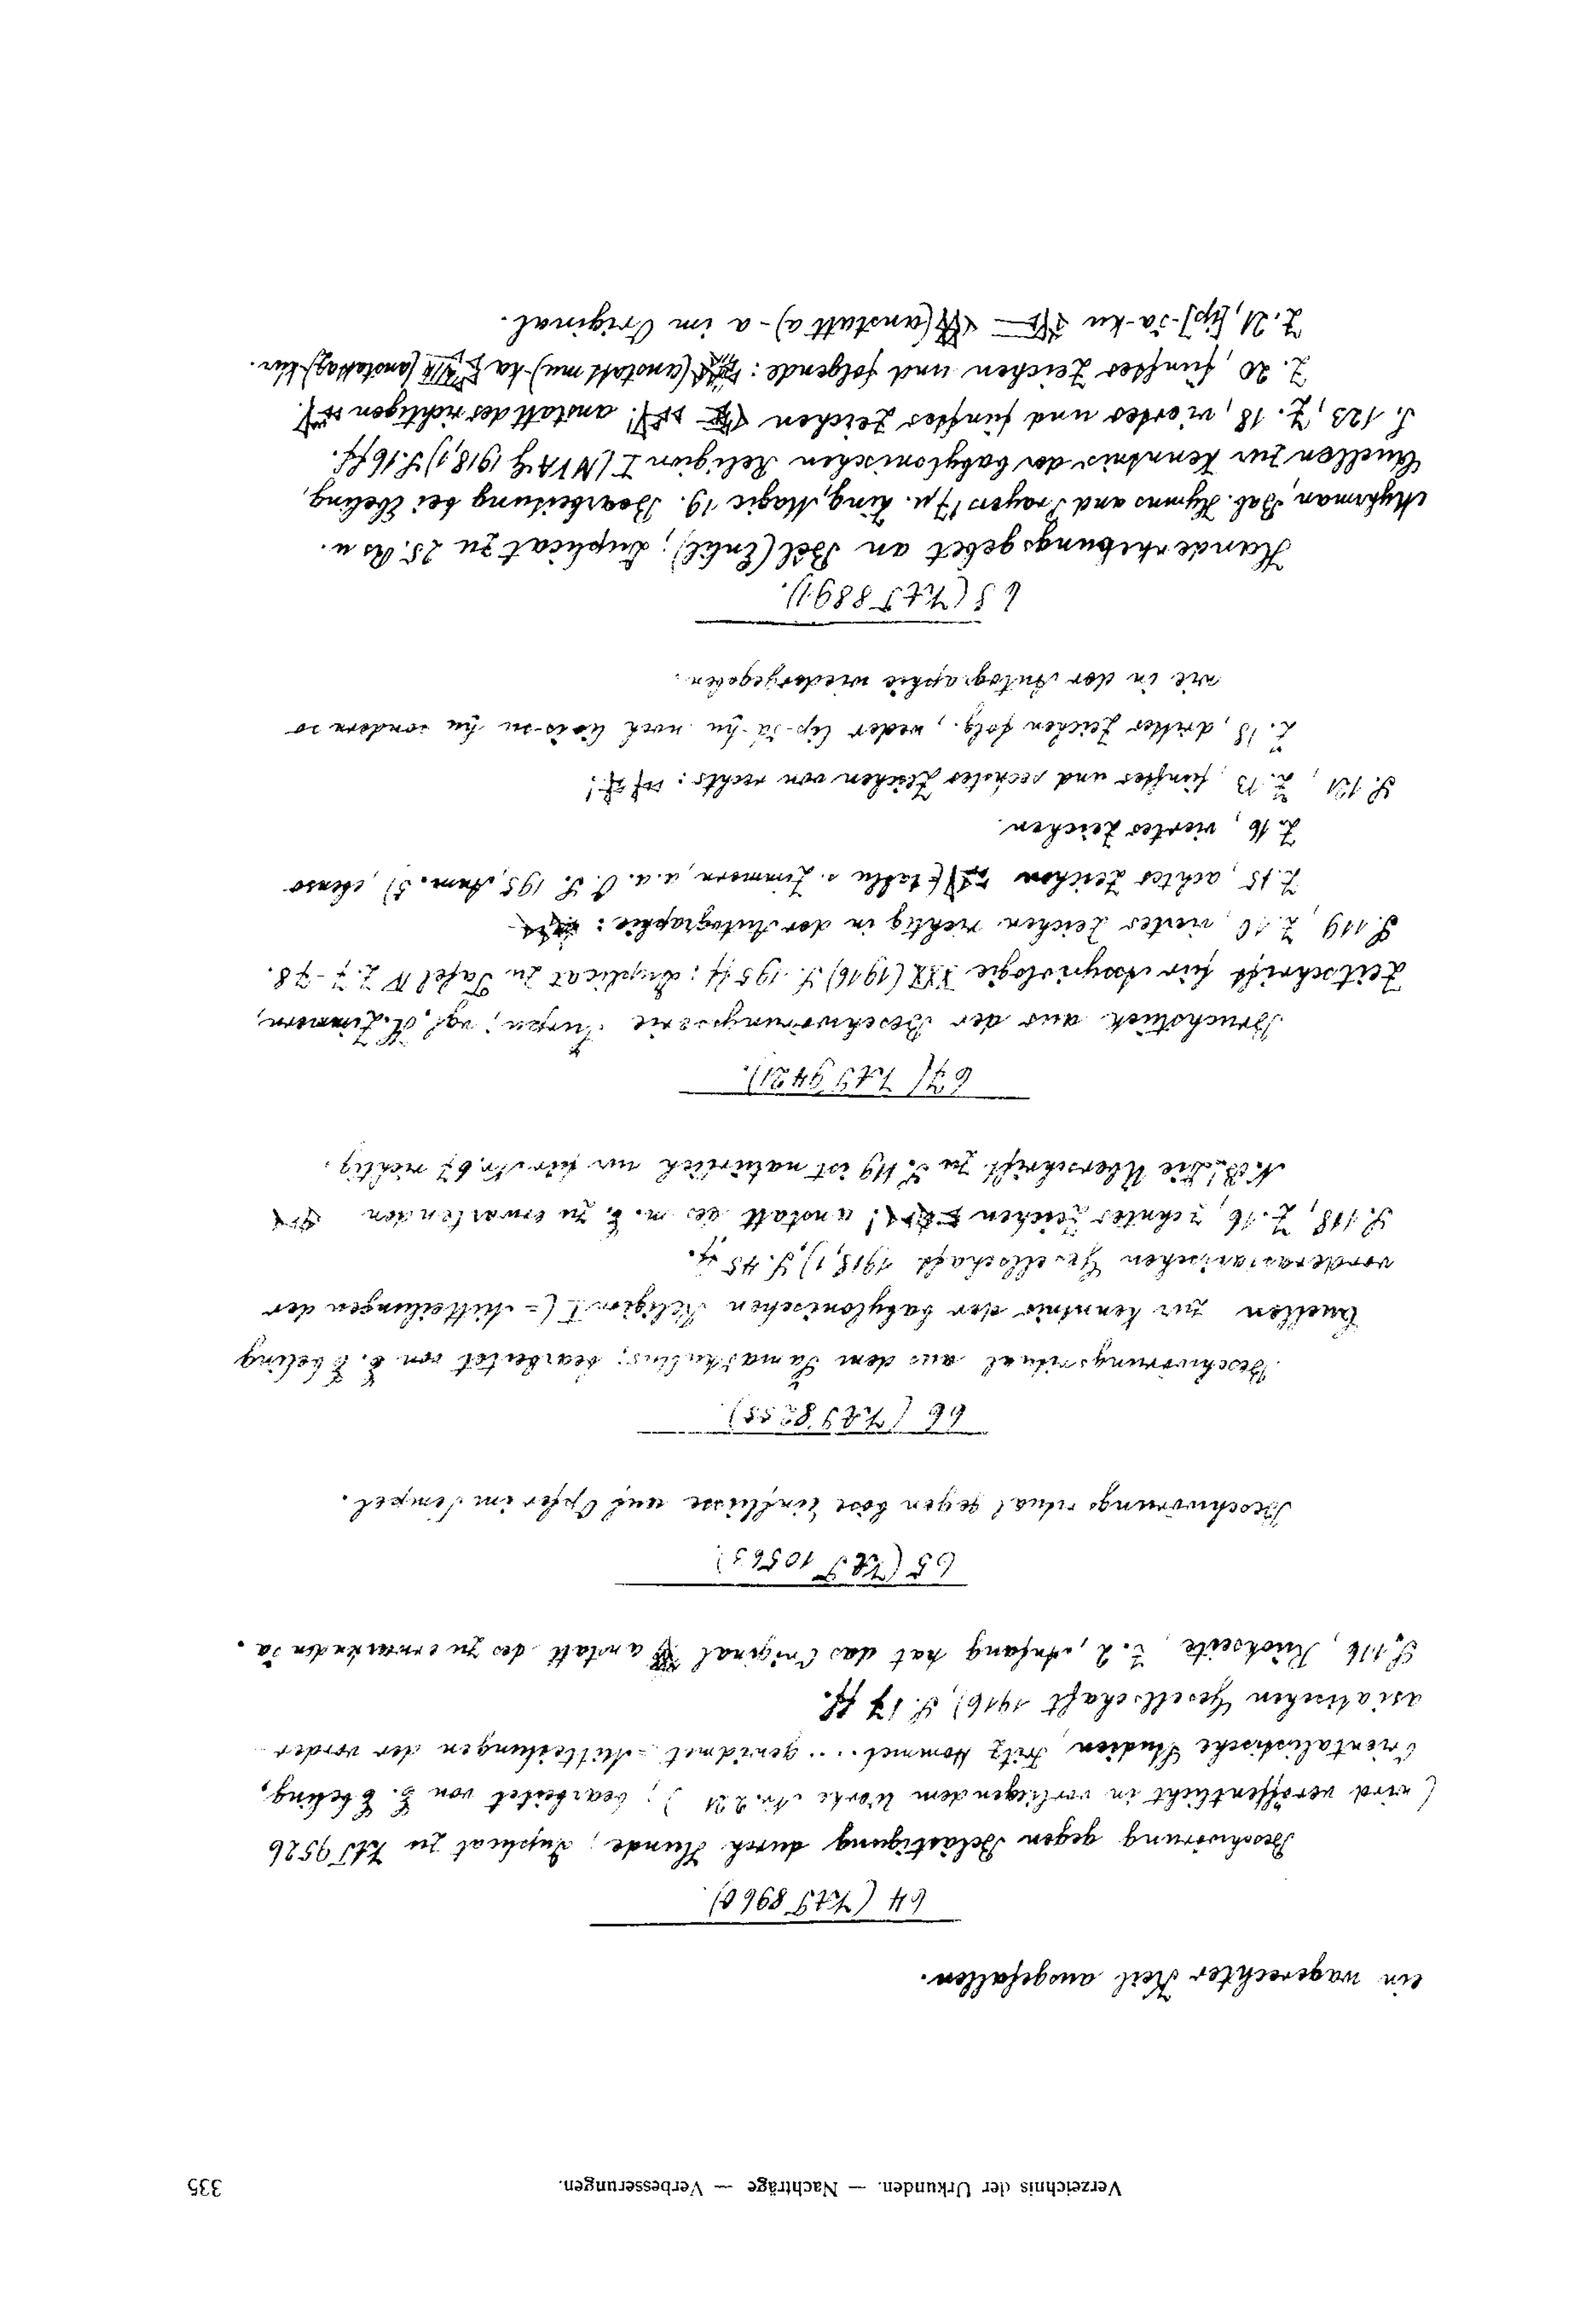 Verzeichnis der Urkunden. — Nachträge — Verbesserungen. 335
ein wagerechter Keil ausgefallen.
64 (VAT 8960).
Beschwörung gegen Belästigung durch Hunde; Duplicat zu VAT 9526
(wird veröffentlicht in vorliegendem Werke Nr. 221); bearbeitet von E. Ebeling,
Orientalistische Studien, Fritz Hommel ... gewidmet = Mitteilungen der vorder
asiatischen Gesellschaft 1916), S. 17 ff.
S. 116, Rückseite, Z. 2, Anfang hat das Original anstatt des zu erwartenden ša.
65 (VAT 10563)
Beschwörungsritual gegen böse Einflüsse auf Opfer im Tempel.
66 (VAT 8255).
Beschwörungsritual aus dem Šamaškultus; bearbeitet von E. Ebeling
Quellen zur Kenntnis der babylonischen Religion I (= Mitteilungen der
vorderasiatischen Gesellschaft 1918,1), S. 45 ff.
S. 118, Z. 16, zehntes Zeichen ! anstatt des m. E. zu erwartenden
N.B. Die Überschrift zu S. 119 ist natürlich nur für Nr. 67 richtig.
67 (VAT 9421).
Bruchstück aus der Beschwörungsserie Šurpu; vgl. H. Zimmern,
Zeitschrift für Assyriologie XXX (1916) S. 195 ff: Duplicat zu Tafel IV Z. 7-78.
S. 119, Z. 10, viertes Zeichen richtig in der Autographie:
Z. 15, achtes Zeichen (tallu s. Zimmern, a. a. O. S. 195, Anm. 3), ebenso
Z. 16, viertes Zeichen.
S. 121, Z. 13, fünftes und sechstes Zeichen von rechts: !
Z. 18, drittes Zeichen folg., weder lip-šá-ḫu noch sondern so
wie in der Autographie wiedergegeben.
68 (VAT 8891).
Handerhebungsgebet an Bêl (Enlil); Duplicat zu 25. As u.
Myhrman, Bab. Hymns and Prayers 17 u. King, Magic 19. Bearbeitung bei Ebeling,
Quellen zur Kenntnis der babylonischen Religion I (MVAG 1918,1) S. 16 ff.
S. 123, Z. 18, viertes und fünftes Zeichen ! anstatt des richtigen
Z. 20, fünftes Zeichen und folgende: (anstatt mu)-ta (anstatt az)-kur.
Z. 21, [lip]-ša-ku (anstatt a)-a im Original.